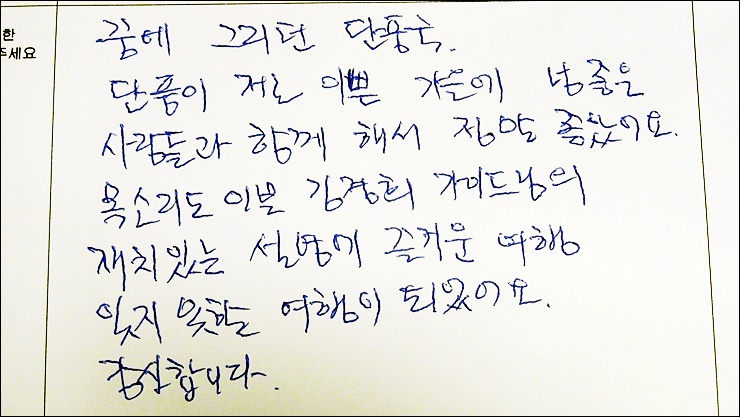 한
주세요
꿈에 그리던 단풍국.
단풍이 저로 이쁜 가을에 넘 좋은
사람들과 함께 해서 정말 좋았어요.
목소리도 이쁜 김경희 가이드님의
재치있는 설명에 즐거운 여행
잊지 못할 여행이 되었어요.
감사합니다.